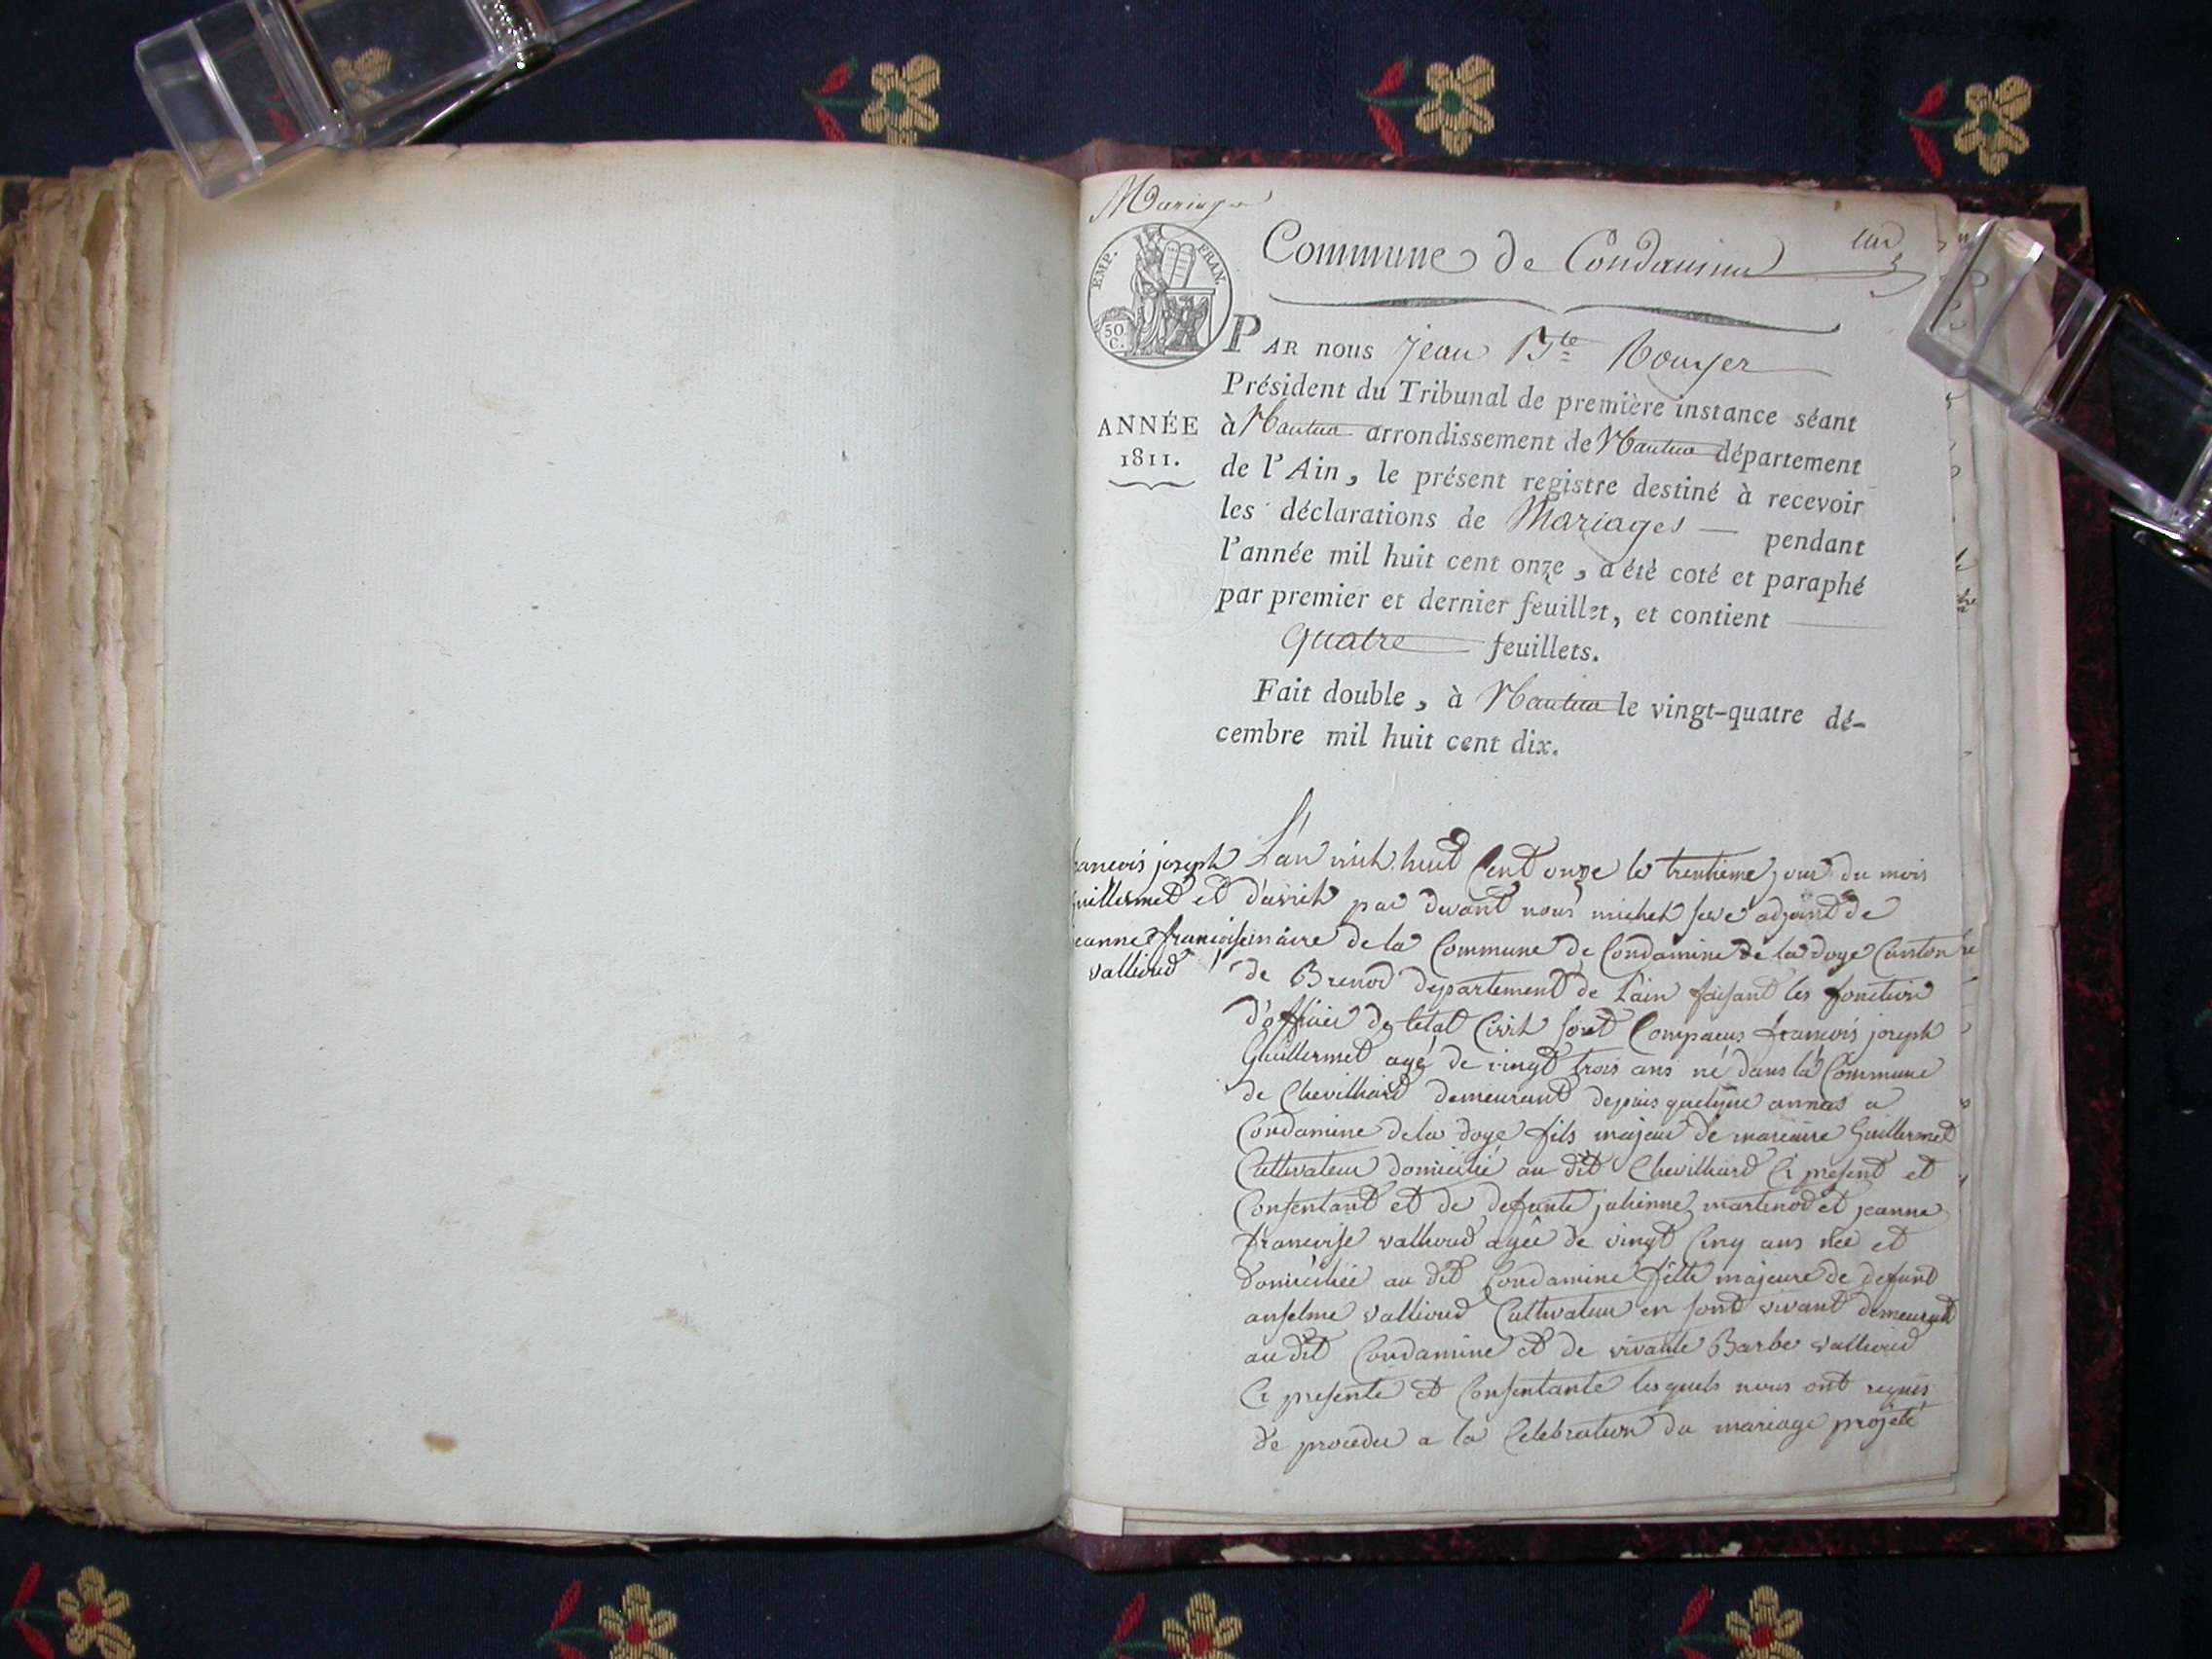 Mariage
Commune de Condamine
un
EMP. FRAN.
50 C.
PAR nous jean Bte
Président du Tribunal de première instance séant
ANNÉE
1811.
à Nantua arrondissement de Nantua département
de l'Ain, le présent registre destiné à recevoir
les déclarations de Mariages pendant
l'année mil huit cent onze, a été coté et paraphé
par premier et dernier feuillet, et contient
quatre feuillets.
Fait double, à Nantua le vingt-quatre dé-
cembre mil huit cent dix.
francois joseph
guillermet et
jeanne francoise
vallioud
L'an mil huit Cent onze le trentieme jour du mois
d'avril par devant nous michel seve adjoint de
maire de la Commune de Condamine de la doye Canton
de Brenod departement de Lain faisant les fonction
d'officier de letat Civil sont Comparus francois joseph
Guillermet agé de vingt trois ans né dans la Commune
de Chevilliard demeurant depuis quelque annees a
Condamine de la doye fils majeur de Guillermet
Cultivateur domicilié au dit Chevilliard Ci present et
Consentant et de defunte julienne martinod et jeanne
francoise vallioud agée de vingt Cinq ans née et
domiciliée au dit Condamine fille majeure de defunt
anselme vallioud Cultivateur en sont vivant demeurant
au dit Condamine et de vivante Barbe vallioud
Ci presente et Consentante lesquels nous ont requis
de proceder a la Celebration du mariage projeté